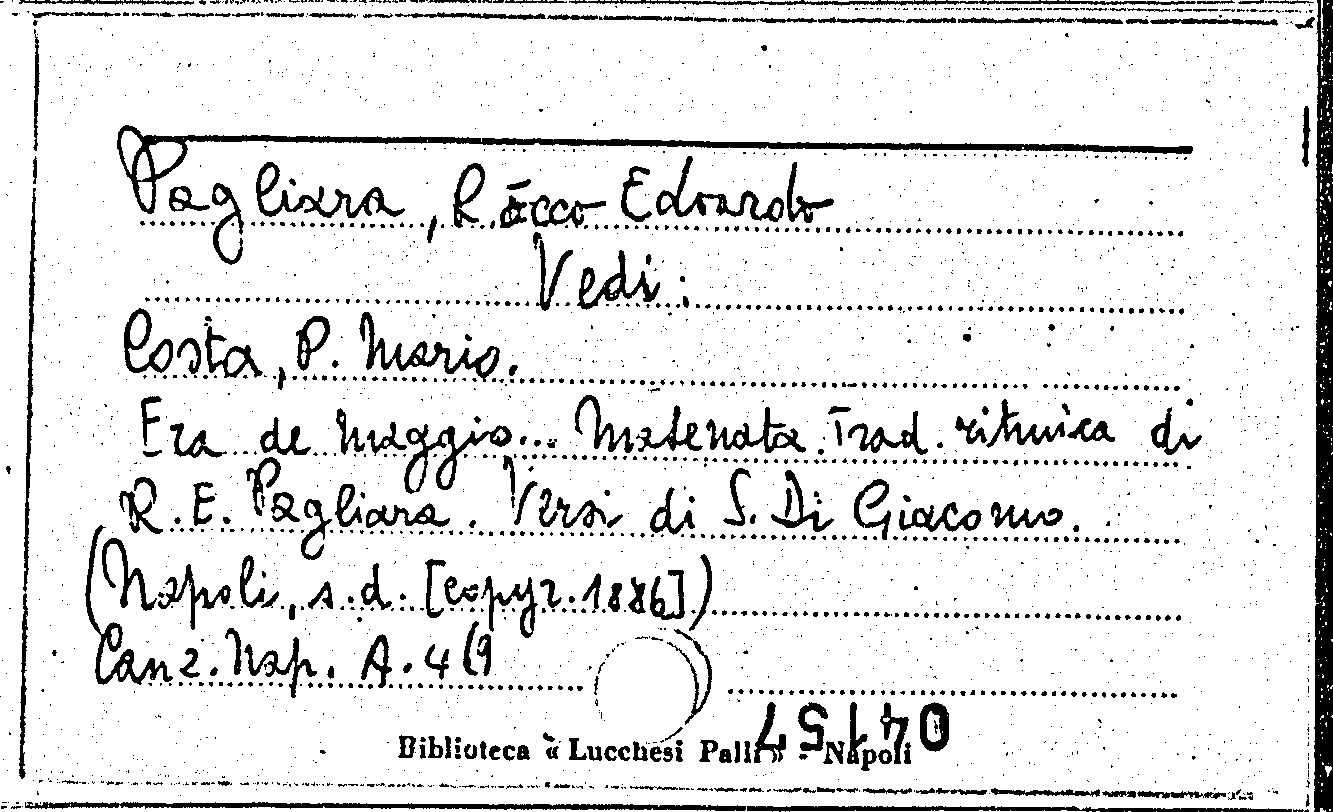 Pagliara, Rocco Edoardo
Vedi:
Costa, P. Mario.
Era de maggio... Matenata. Trad. ritmica di
R. E. Pagliara. Versi di S. Di Giacomo.
(Napoli, s.d. [copyr. 1886])
Canz. Nap. A. 4 (9
Biblioteca « Lucchesi Palli » - Napoli
04157